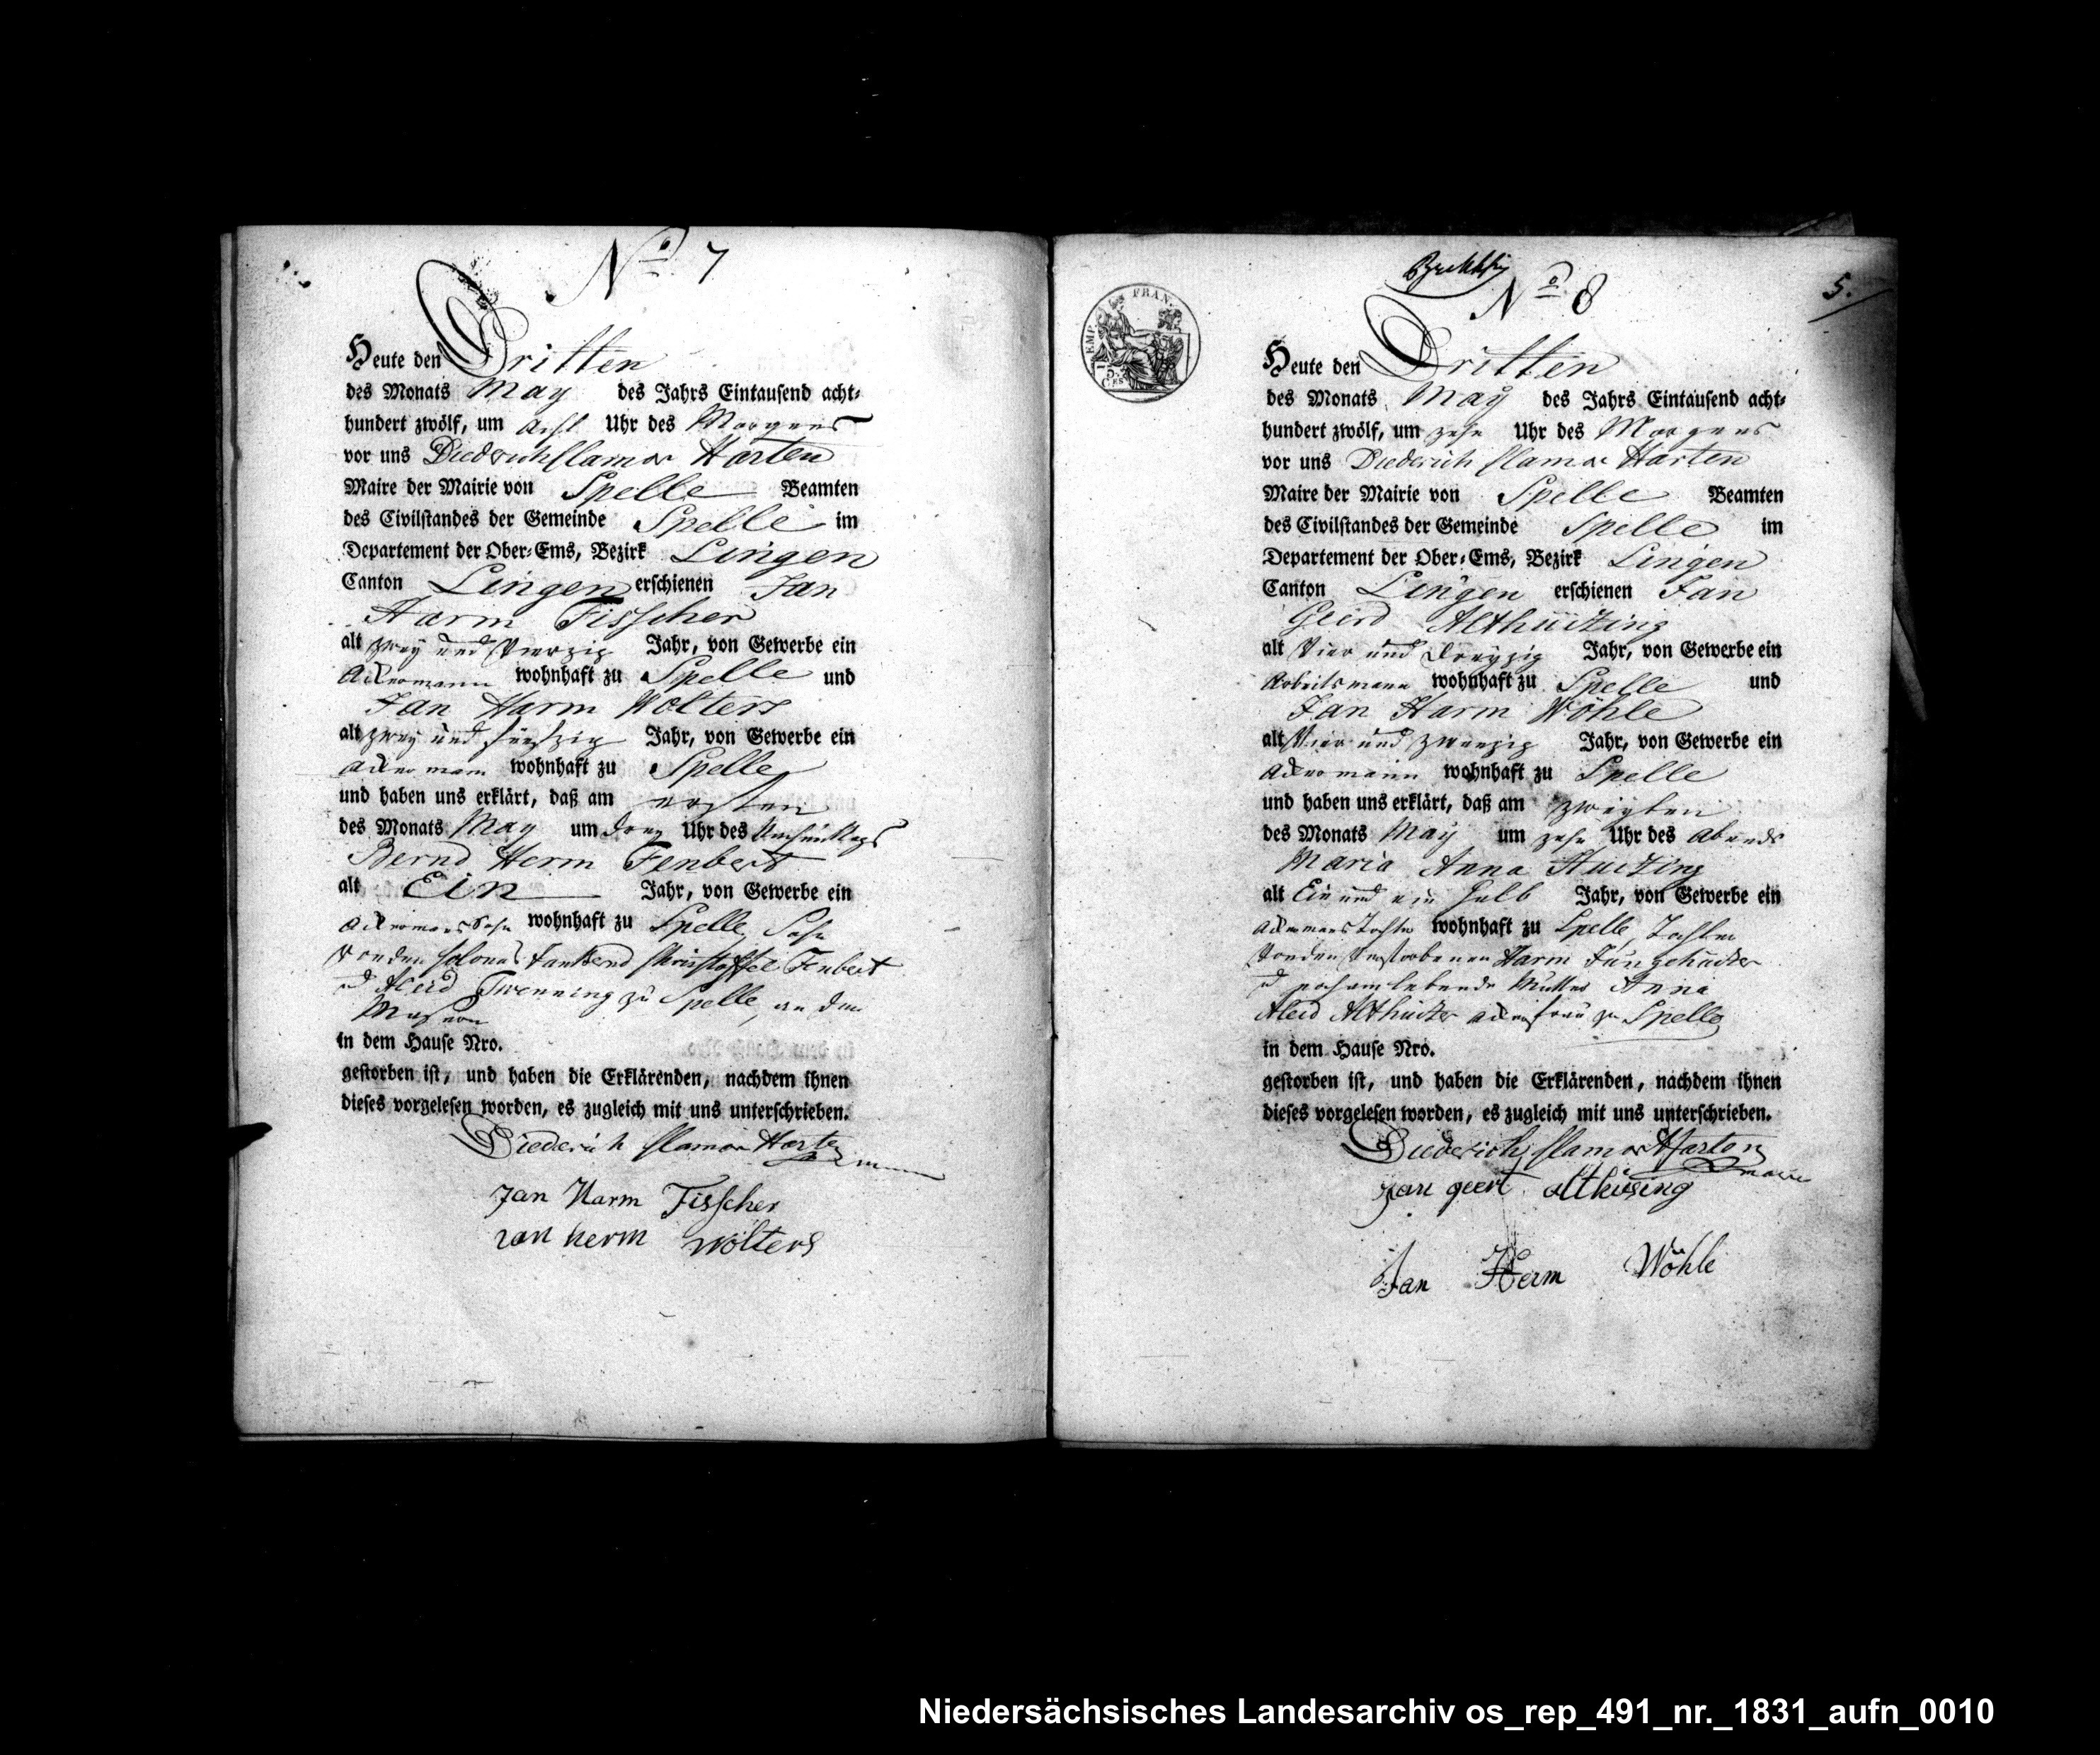 No 7
Heute den Dritten
des Monats May des Jahrs Eintausend acht-
hundert zwölf, um acht Uhr des Morgens
vor uns Diederich Clamor Harten
Maire der Mairie von Spelle Beamten
des Civilstandes der Gemeinde Spelle im
Departement der Ober-Ems, Bezirk Lingen
Canton Lingen erschienen Jan
Harm Fisscher
alt zwey und Vierzig Jahr, von Gewerbe ein
Ackermann wohnhaft zu Spelle und
Jan Harm Wolters
alt zwey und fünfzig Jahr, von Gewerbe ein
Ackermann wohnhaft zu Spelle
und haben uns erklärt, daß am ersten
des Monats May um drey Uhr des Nachmittags
Bernd Herm Fenbert
alt Ein Jahr, von Gewerbe ein
Ackermans Sohn wohnhaft zu Spelle, Sohn
von den Colonas Christoffel Fenbert
Aleid Twenning zu Spelle, an den
Masern
in dem Hause Nro.
gestorben ist, und haben die Erklärenden, nachdem ihnen
dieses vorgelesen worden, es zugleich mit uns unterschrieben.
Diederich Clamor Harten
Jan Harm Fisscher
Jan herm wolters
FRAN.
EMP.
75
CES
No 8
5.
Heute den Dritten
des Monats May des Jahrs Eintausend acht-
hundert zwölf, um zehn Uhr des Morgens
vor uns Diederich Clamor Harten
Maire der Mairie von Spelle Beamten
des Civilstandes der Gemeinde Spelle im
Departement der Ober-Ems, Bezirk Lingen
Canton Lingen erschienen Jan
Geerd Althüsing
alt Vier und Dreyzig Jahr, von Gewerbe ein
Arbeitsmann wohnhaft zu Spelle und
Jan Harm Wöhle
alt Vier und zwanzig Jahr, von Gewerbe ein
Ackermann wohnhaft zu Spelle
und haben uns erklärt, daß am zweyten
des Monats May um zehn Uhr des Abends
Maria Anna
alt Ein und ein halb Jahr, von Gewerbe ein
Ackermans Tochter wohnhaft zu Spelle, Tochter
von den Verstorbenen Harm
noch am lebende Mutter Anna
Aleid zu Spelle
in dem Hause Nro.
gestorben ist, und haben die Erklärenden, nachdem ihnen
dieses vorgelesen worden, es zugleich mit uns unterschrieben.
Diederich Clamor Harten
maire
Jan geert althüsing
Jan Herm Wöhle
Niedersächsisches Landesarchiv os_rep_491_nr._1831_aufn_0010